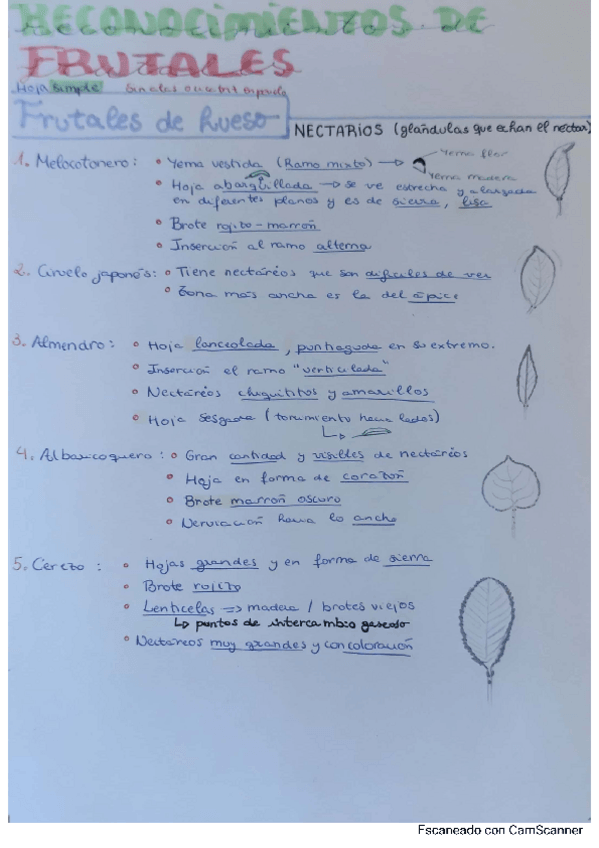 RECONOCIMIENTOS DE
FRUTALES
Hoja simple
Frutales de hueso
NECTARIOS (glándulas que echan el néctar)
1. Melocotonero: • Yema vestida (Ramo mixto) → Yema flor
Yema madera
• Hoja abarquillada → se ve estrecha y alargada
en diferentes planos y es de sierra, lisa
• Brote rojito-marrón
• Inserción al ramo alterna
2. Ciruelo japonés: • Tiene nectáreos que son difíciles de ver
• Zona más ancha es la del ápice
3. Almendro: • Hoja lanceolada, puntiaguda en su extremo.
• Inserción el ramo "verticilada"
• Nectáreos chiquititos y amarillos
• Hoja sesgada (torcimiento hacia lados)
4. Albaricoquero: • Gran cantidad y visibles de nectáreos
• Hoja en forma de corazón
• Brote marrón oscuro
• Nerviación hacia lo ancho
5. Cerezo: • Hojas grandes y en forma de sierra
• Brote rojizo
• Lenticelas => madera / brotes viejos
↳ puntos de intercambio gaseoso
• Nectáreos muy grandes y con coloración
Escaneado con CamScanner